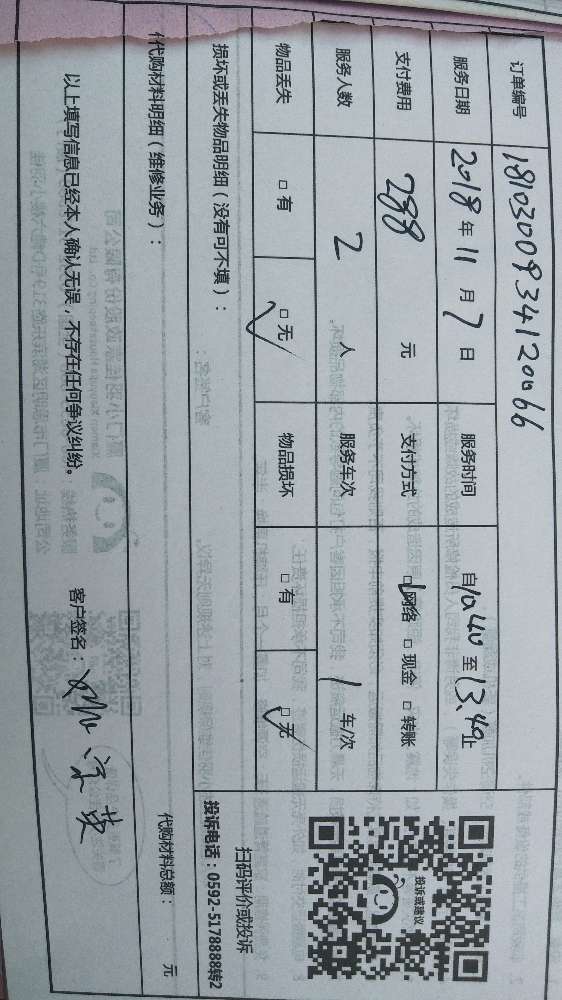 订单编号 1810300934120066
服务日期 2018 年 11 月 7 日 服务时间 自10:40 至 13:40止
支付费用 288 元 支付方式 □网络 □ 现金 □ 转账
服务人数 2 人 服务车次 1 车/次
物品丢失 □ 有 □ 无 物品损坏 □ 有 □ 无
投诉或建议
扫码评价或投诉
投诉电话：0592-5178888转2
损坏或丢失物品明细（没有可不填）：
代购材料明细（维修业务）： 代购材料总额： 元
以上填写信息已经本人确认无误，不存在任何争议纠纷。 客户签名：